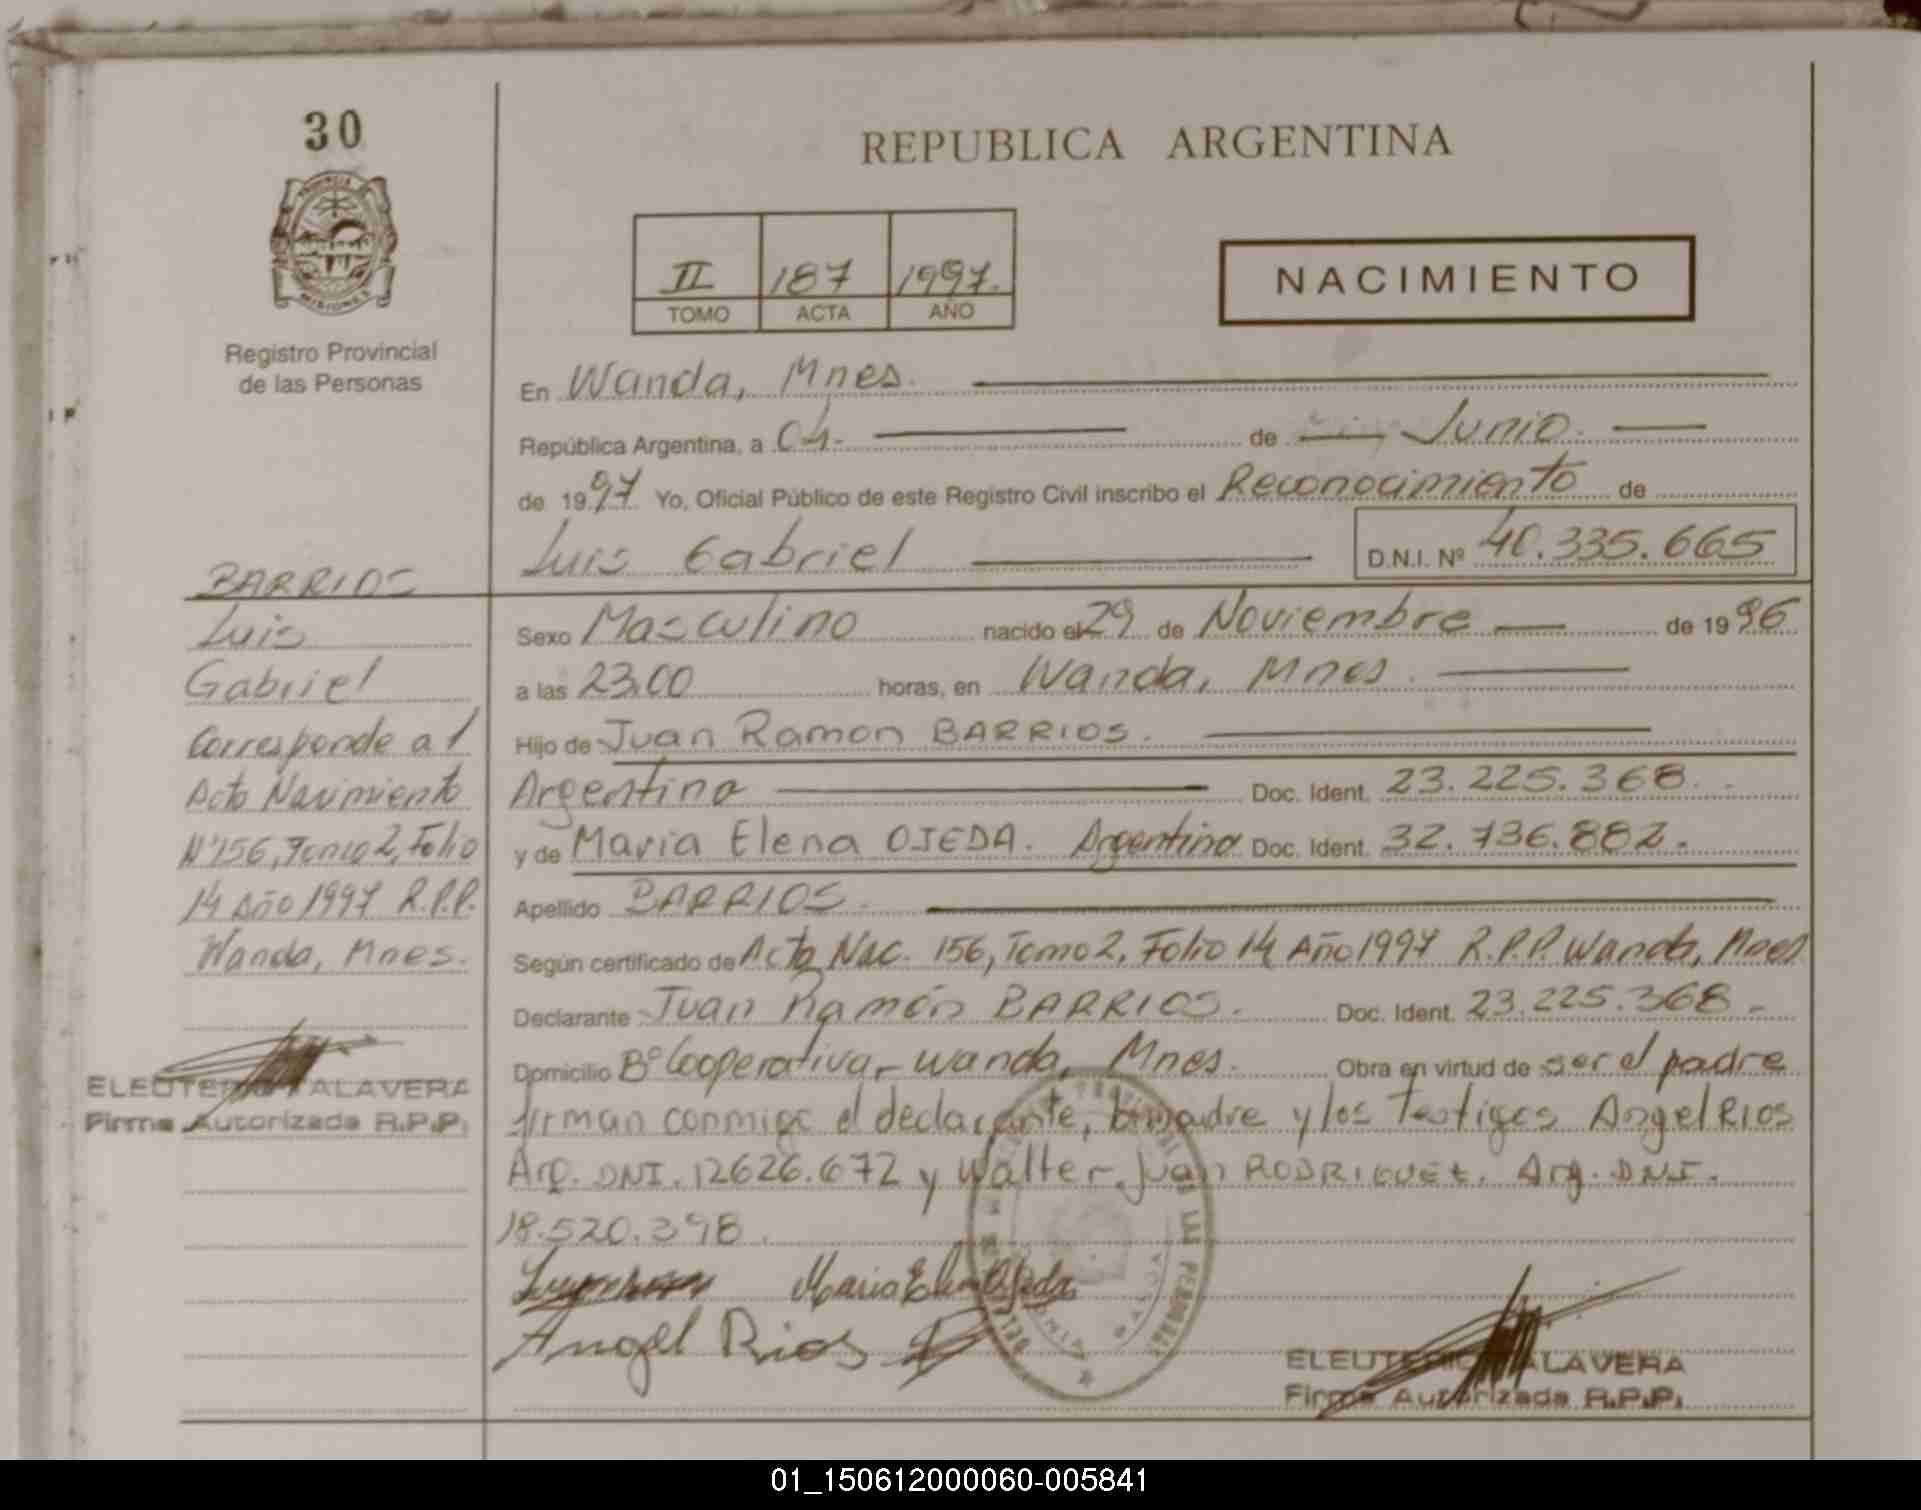 30
PROVINCIA DE
MISIONES
Registro Provincial
de las Personas
BARRIOS
Luis
Gabriel
Corresponde al
Acta Nacimiento
Nº156, Tomo 2, Folio
14 Año 1997 R.P.P.
Wanda, Mnes.
ELEUTERIO TALAVERA
Firma Autorizada R.P.P.
REPUBLICA ARGENTINA
II 187 1997.
TOMO ACTA AÑO
NACIMIENTO
En Wanda, Mnes.
República Argentina, a 04. de Junio.
de 1997 Yo, Oficial Público de este Registro Civil inscribo el Reconocimiento de
Luis Gabriel D.N.I. Nº 40.335.665
Sexo Masculino nacido el 29 de Noviembre de 1996
a las 23.00 horas, en Wanda, Mnes.
Hijo de Juan Ramon BARRIOS.
Argentino Doc. Ident. 23.225.368.
y de Maria Elena OJEDA. Argentina Doc. Ident. 32.736.882.
Apellido BARRIOS.
Según certificado de Acta Nac. 156, Tomo 2, Folio 14 Año 1997 R.P.P. Wanda, Mnes
Declarante Juan Ramón BARRIOS. Doc. Ident. 23.225.368.-
Domicilio Bº Cooperativa - Wanda, Mnes. Obra en virtud de ser el padre
firman conmigo el declarante, la madre y los testigos Angel RIOS
Arg. DNI. 12626.672 y Walter Juan RODRIGUEZ. Arg. DNI.
18.520.398.
Maria Elena Ojeda
Angel Rios
DE LAS PERSONAS
ELEUTERIO TALAVERA
Firma Autorizada R.P.P.
01_150612000060-005841